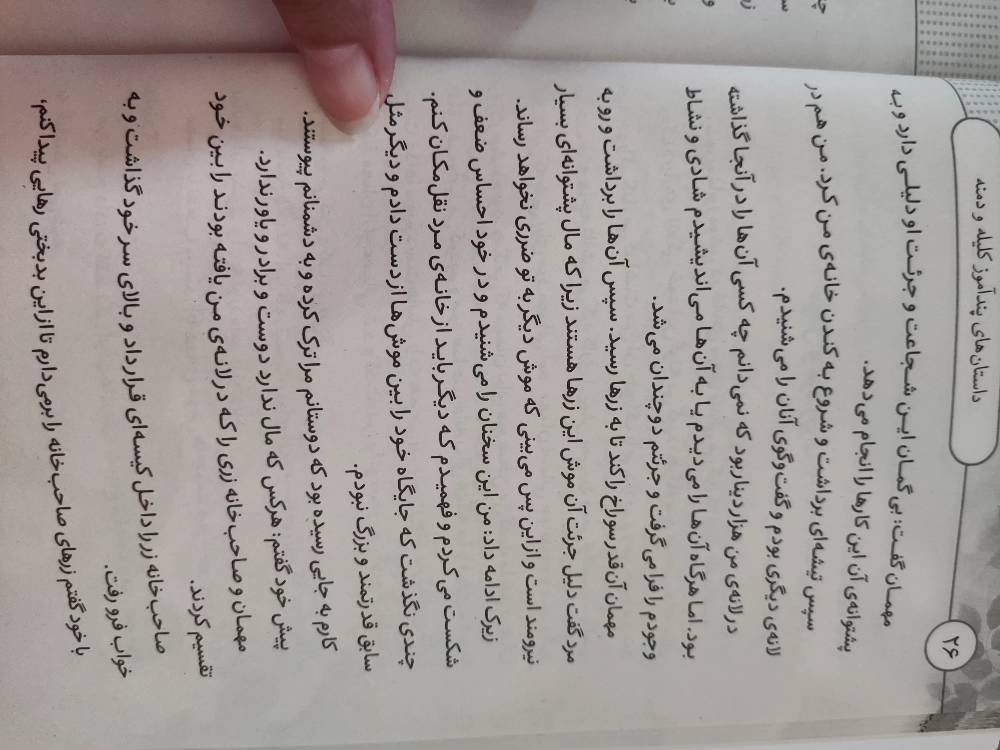 داستان‌های پندآموز کلیله و دمنه
۲۶
مهمان گفت: بی‌گمان این شجاعت و جرئت او دلیلی دارد و به
پشتوانه‌ی آن این کارها را انجام می‌دهد.
سپس تیشه‌ای برداشت و شروع به کندن خانه‌ی من کرد. من هم در
لانه‌ی دیگری بودم و گفت‌وگوی آنان را می‌شنیدم.
در لانه‌ی من هزار دینار بود که نمی‌دانم چه کسی آن‌ها را در آنجا گذاشته
بود. اما هرگاه آن‌ها را می‌دیدم یا به آن‌ها می‌اندیشیدم شادی و نشاط
وجودم را فرا می‌گرفت و جرئتم دوچندان می‌شد.
مهمان آن‌قدر سوراخ را کند تا به زرها رسید. سپس آن‌ها را برداشت و رو به
مرد گفت دلیل جرئت آن موش این زرها هستند زیرا که مال پشتوانه‌ای بسیار
نیرومند است و از این پس می‌بینی که موش دیگر به تو ضرری نخواهد رساند.
زیرک ادامه داد: من این سخنان را می‌شنیدم و در خود احساس ضعف و
شکست می‌کردم و فهمیدم که دیگر باید از خانه‌ی مرد نقل مکان کنم.
چندی نگذشت که جایگاه خود را بین موش‌ها از دست دادم و دیگر مثل
سابق قدرتمند و بزرگ نبودم.
کارم به جایی رسیده بود که دوستانم مرا ترک کرده و به دشمنانم پیوستند.
پیش خود گفتم: هرکس که مال ندارد دوست و برادر و یاور ندارد.
مهمان و صاحب‌خانه زری را که در لانه‌ی من یافته بودند را بین خود
تقسیم کردند.
صاحب‌خانه زر را داخل کیسه‌ای قرار داد و بالای سر خود گذاشت و به
خواب فرو رفت.
با خود گفتم زرهای صاحب‌خانه را برمی‌دارم تا از این بدبختی رهایی پیدا کنم،